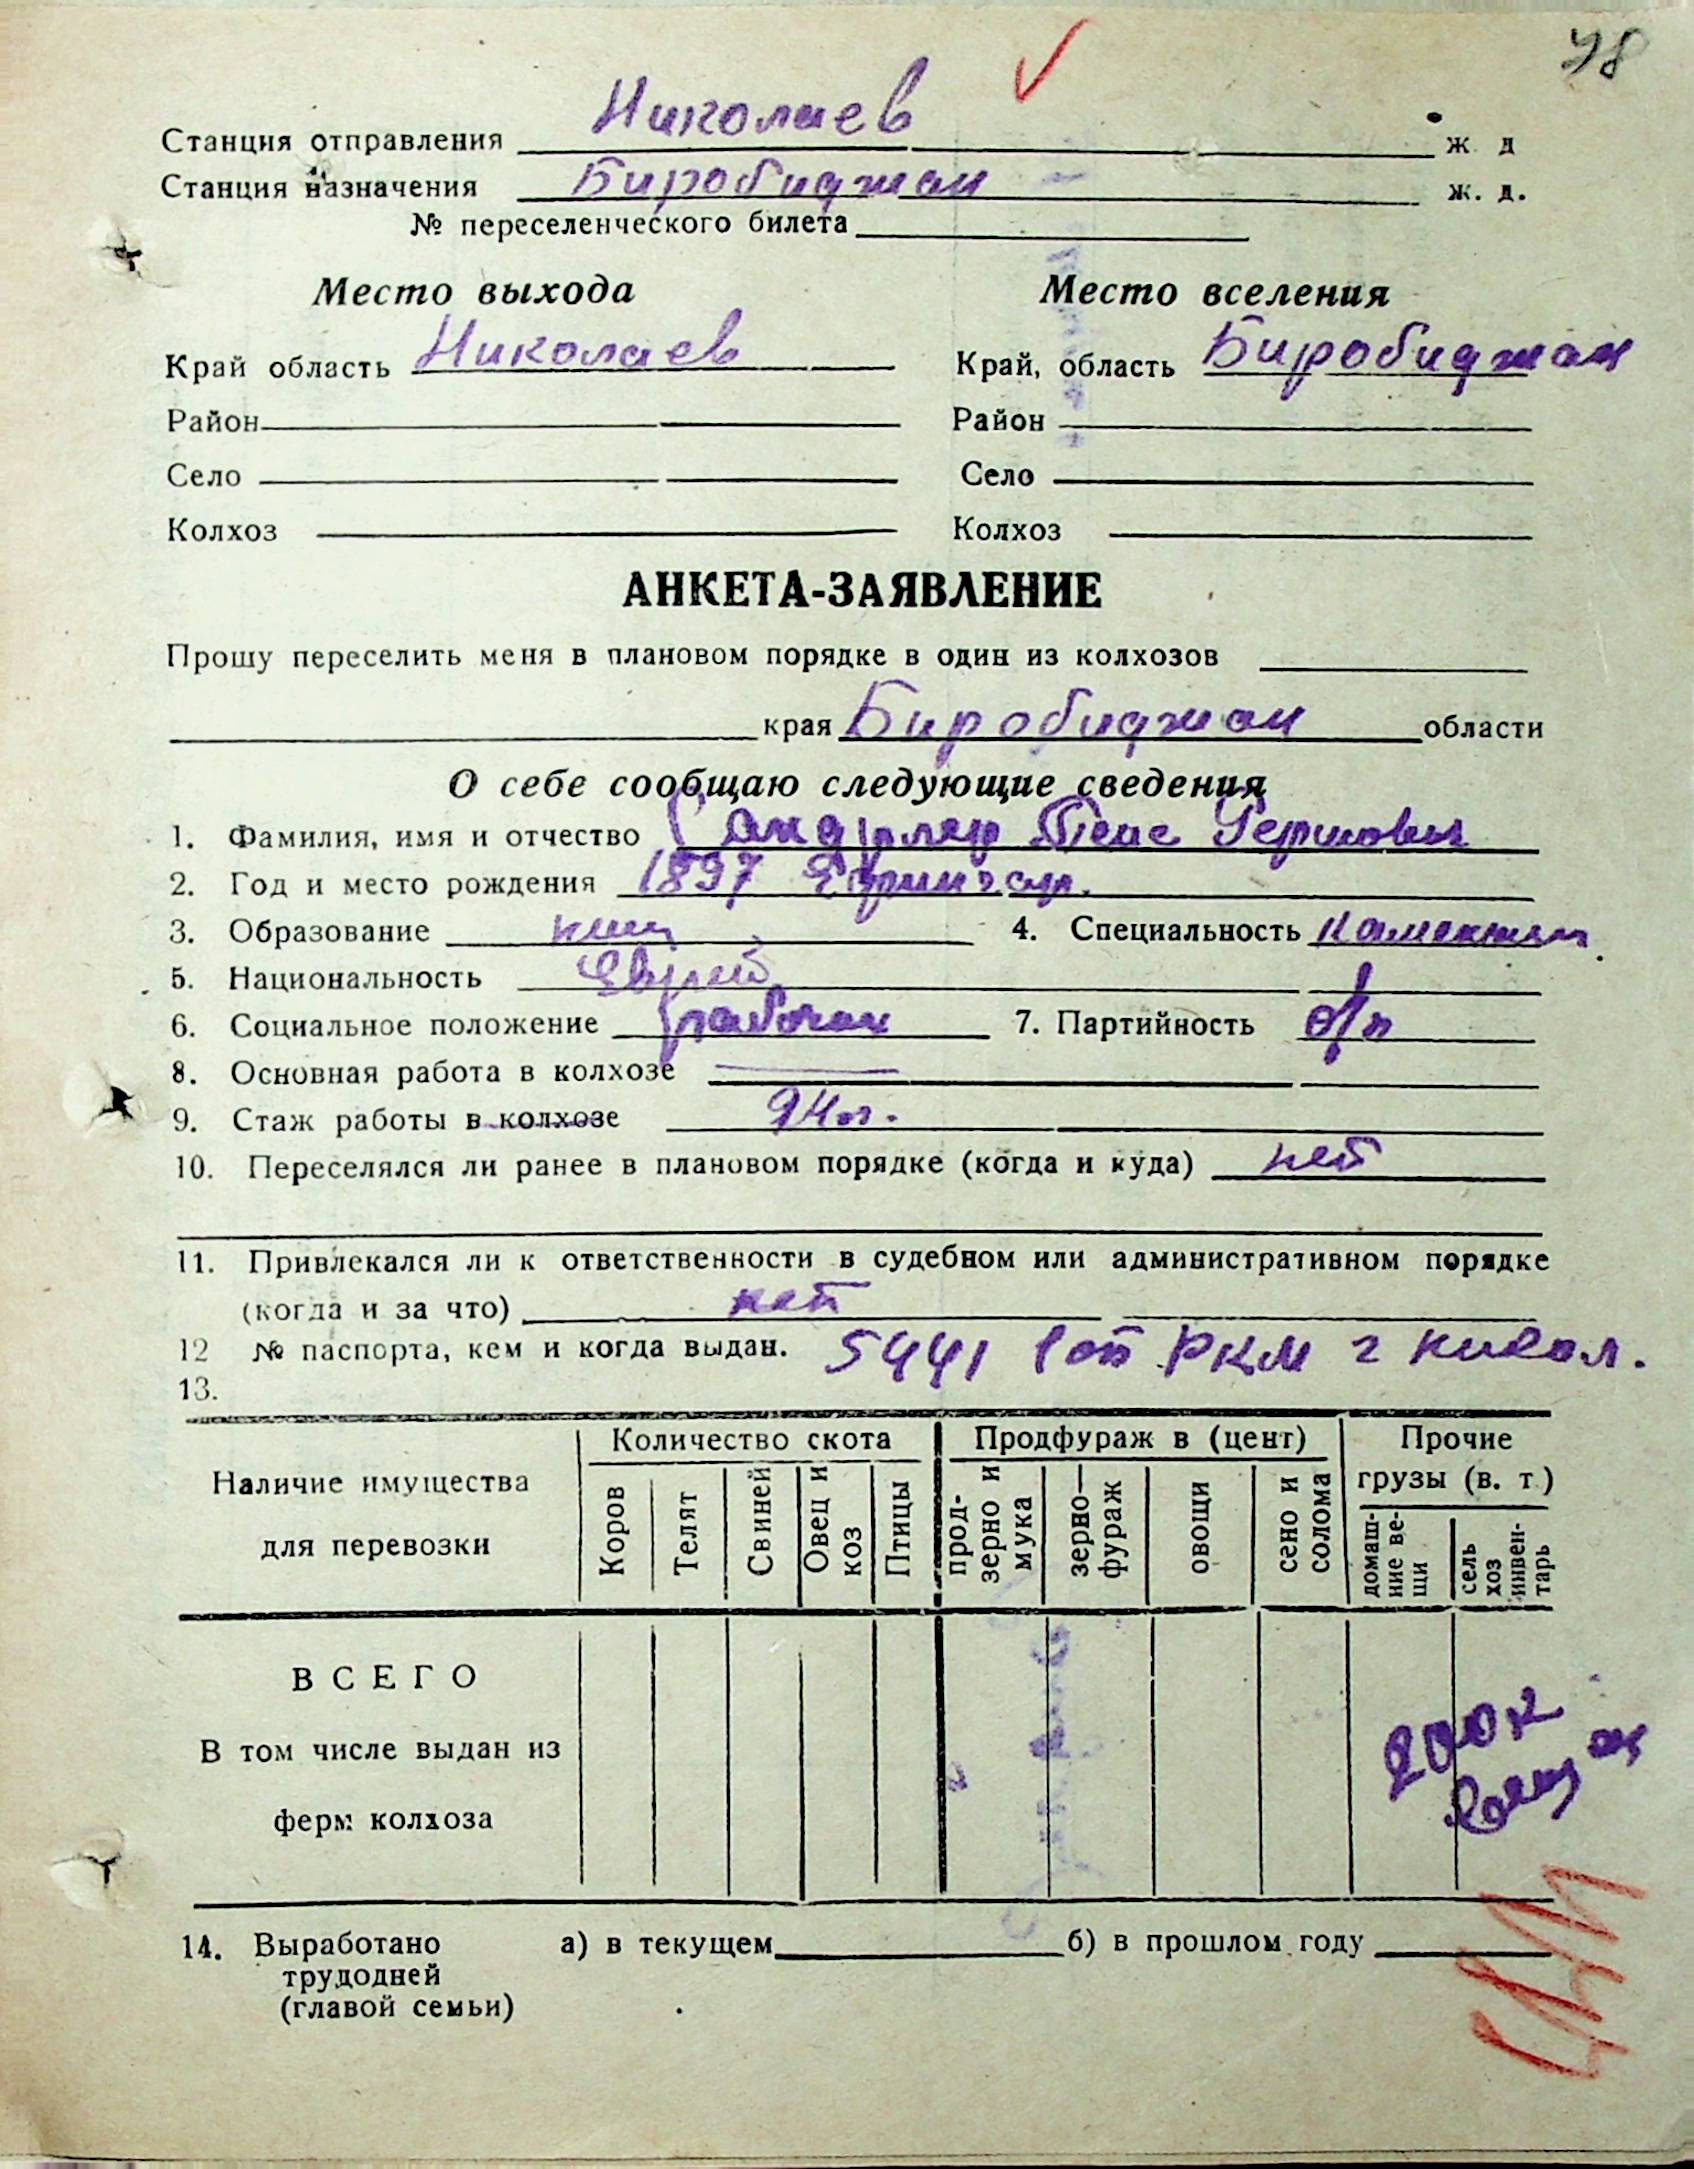 98
Николаев
Станция отправления ж. д
Станция назначения Биробиджан ж. д.
№ переселенческого билета
Место выхода Место вселения
Край область Николаев Край, область Биробиджан
Район Район
Село Село
Колхоз Колхоз
АНКЕТА-ЗАЯВЛЕНИЕ
Прошу переселить меня в плановом порядке в один из колхозов
края Биробиджан области
О себе сообщаю следующие сведения
1. Фамилия, имя и отчество Гершович
2. Год и место рождения 1897
3. Образование низш 4. Специальность
5. Национальность Еврей
6. Социальное положение рабочий 7. Партийность б/п
8. Основная работа в колхозе
9. Стаж работы в колхозе
10. Переселялся ли ранее в плановом порядке (когда и куда) нет
11. Привлекался ли к ответственности в судебном или административном порядке
(когда и за что) нет
12 № паспорта, кем и когда выдан. 5441 1 от РКМ г Никол.
13.
Наличие имущества для перевозки Количество скота Продфураж в (цент) Прочие грузы (в. т.)
Коров Телят Свиней Овец и коз Птицы прод-зерно и мука зерно-фураж овощи сено и солома домаш-ние ве-щи сель хоз инвен-тарь
ВСЕГО
В том числе выдан из
ферм колхоза
200 к
14. Выработано а) в текущем б) в прошлом году
трудодней
(главой семьи)